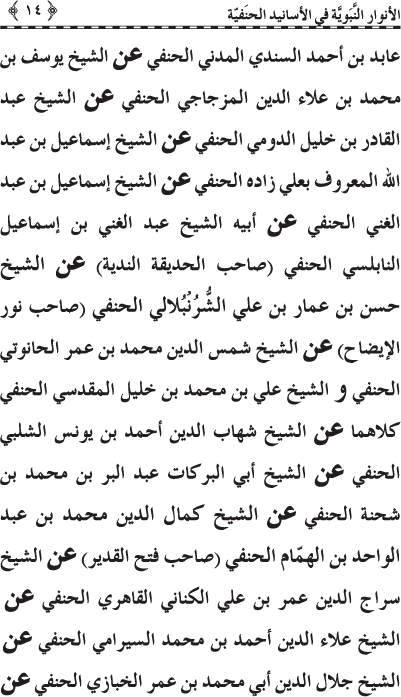 الأنوار النَّبَويَّة في الأسانيد الحنَفيّة ﴿ ١٤ ﴾
عابد بن أحمد السندي المدني الحنفي عن الشيخ يوسف بن
محمد بن علاء الدين المزجاجي الحنفي عن الشيخ عبد
القادر بن خليل الدومي الحنفي عن الشيخ إسماعيل بن عبد
الله المعروف بعلي زاده الحنفي عن الشيخ إسماعيل بن عبد
الغني الحنفي عن أبيه الشيخ عبد الغني بن إسماعيل
النابلسي الحنفي (صاحب الحديقة الندية) عن الشيخ
حسن بن عمار بن علي الشُّرُنْبُلالي الحنفي (صاحب نور
الإيضاح) عن الشيخ شمس الدين محمد بن عمر الحانوتي
الحنفي و الشيخ علي بن محمد بن خليل المقدسي الحنفي
كلاهما عن الشيخ شهاب الدين أحمد بن يونس الشلبي
الحنفي عن الشيخ أبي البركات عبد البر بن محمد بن
شحنة الحنفي عن الشيخ كمال الدين محمد بن عبد
الواحد بن الهمّام الحنفي (صاحب فتح القدير) عن الشيخ
سراج الدين عمر بن علي الكناني القاهري الحنفي عن
الشيخ علاء الدين أحمد بن محمد السيرامي الحنفي عن
الشيخ جلال الدين أبي محمد بن عمر الخبازي الحنفي عن